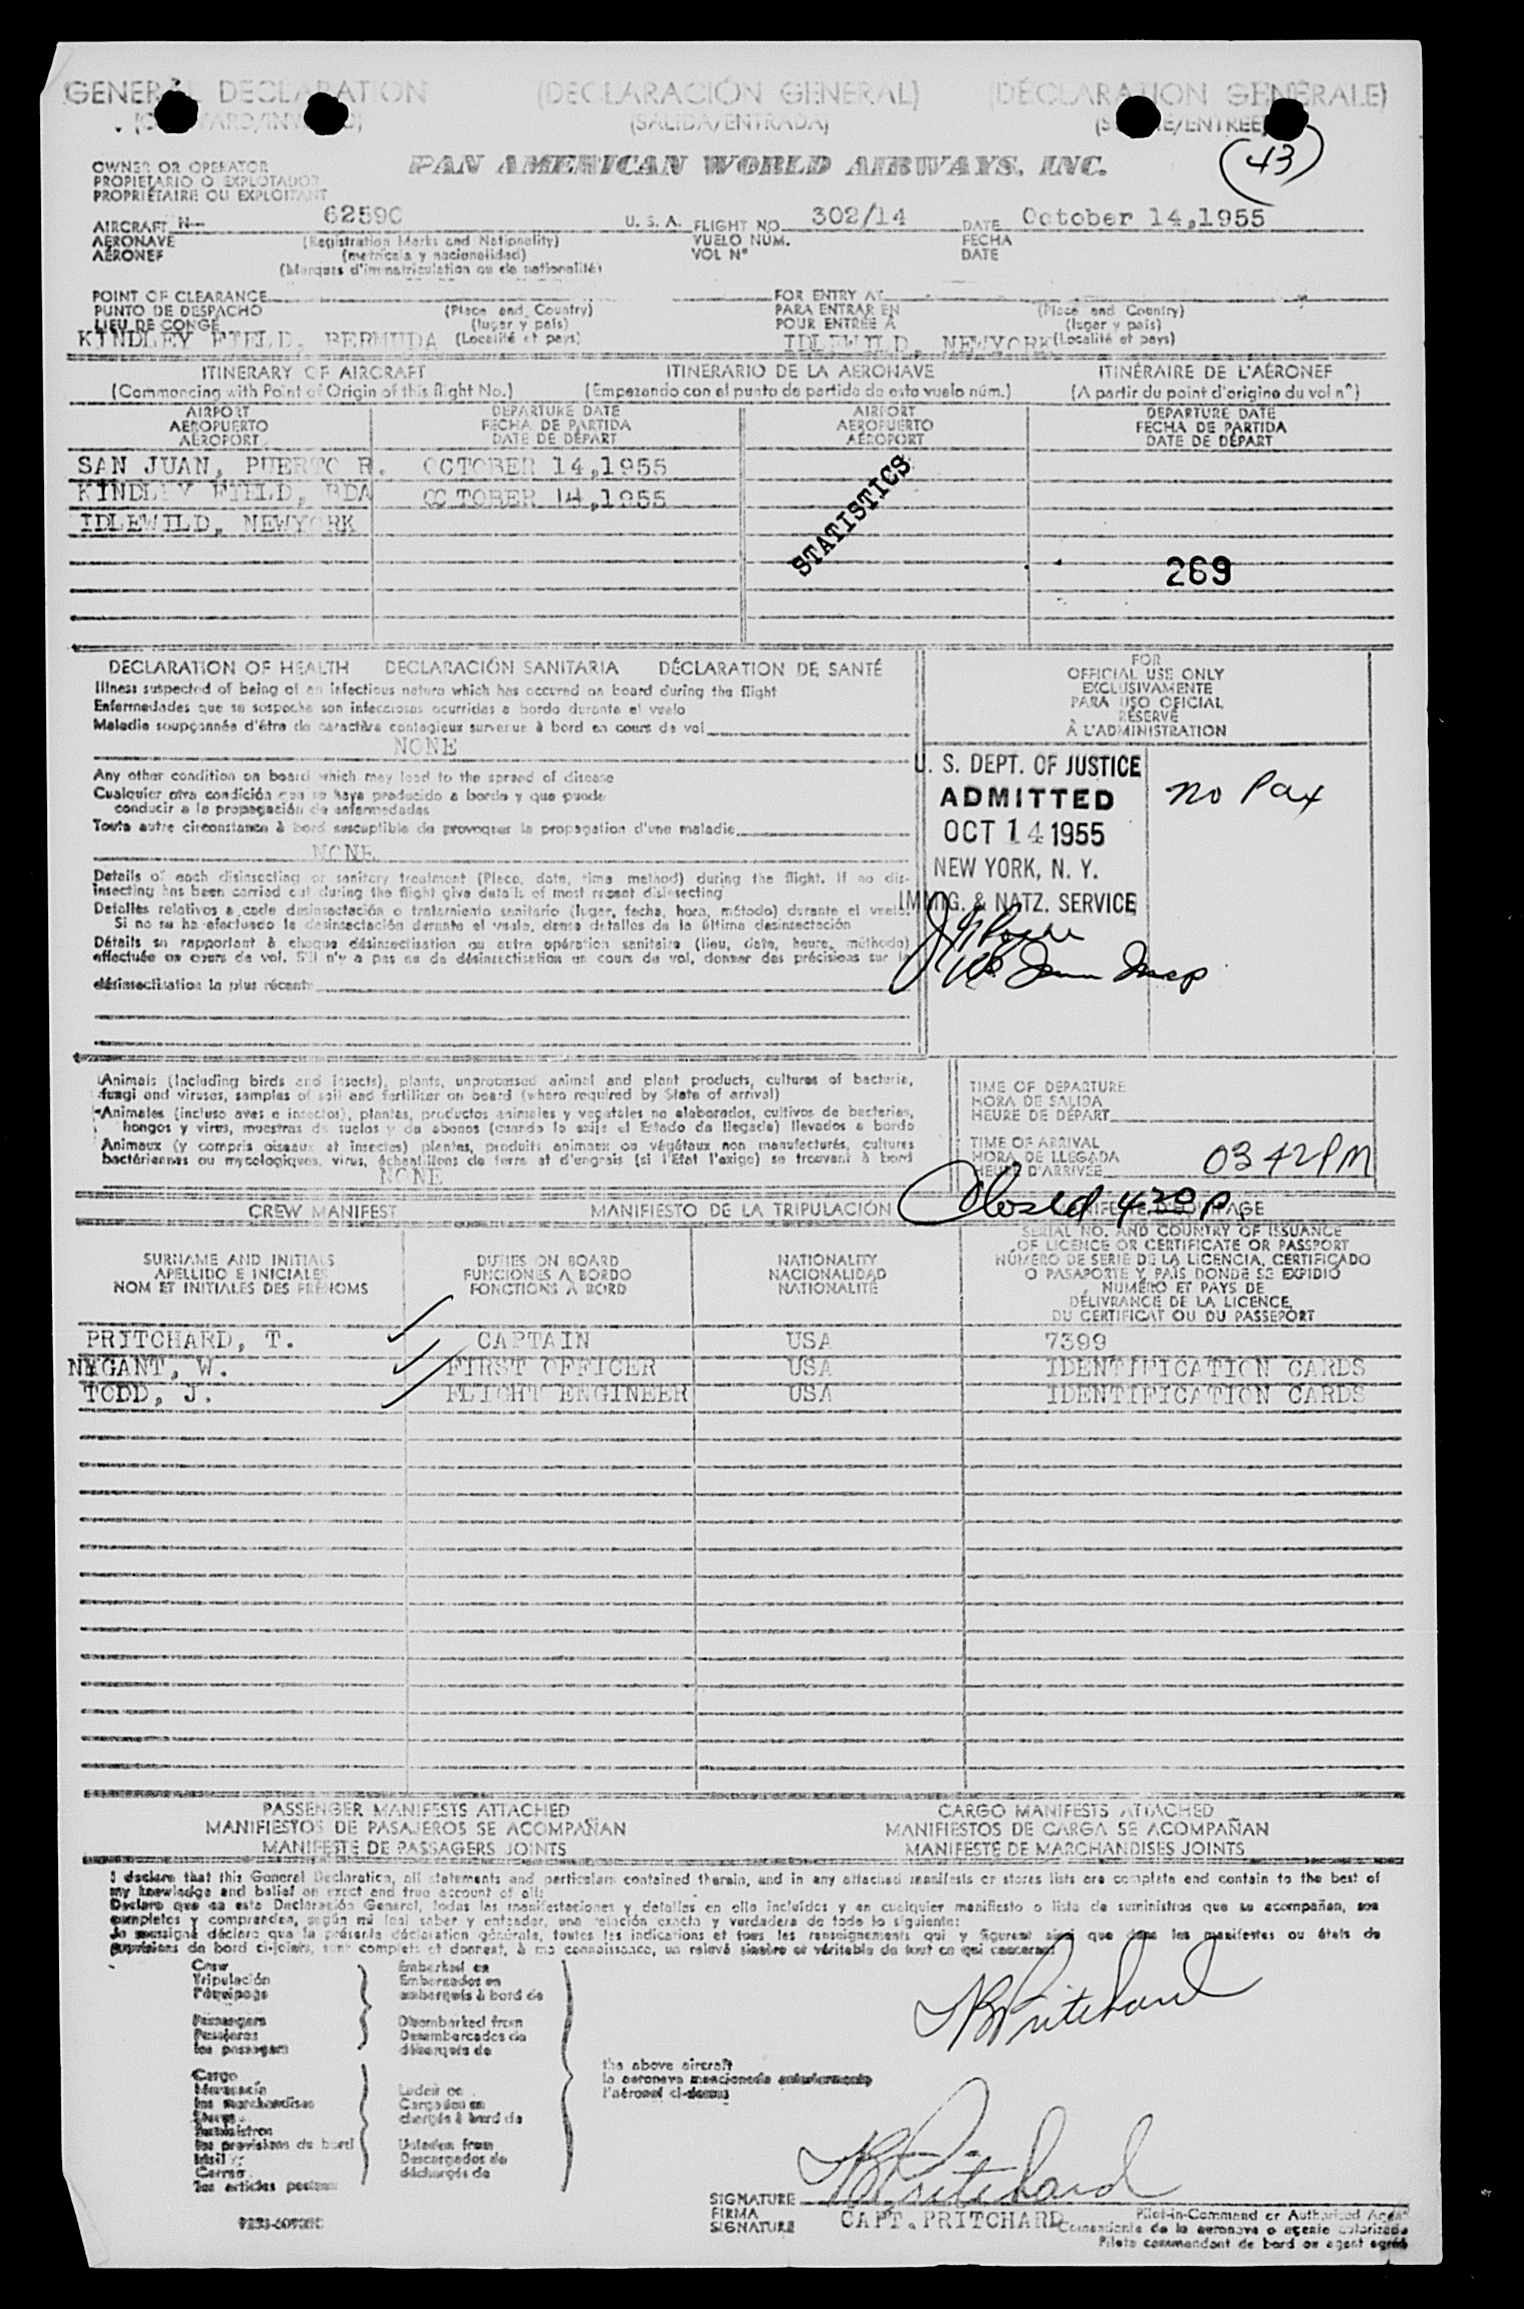 GENERAL DECLARATION (DECLARACIÓN GENERAL) (DÉCLARATION GÉNÉRALE)
(SALIDA/ENTRADA)
43
OWNER OR OPERATOR PAN AMERICAN WORLD AIRWAYS, INC.
PROPIETARIO O EXPLOTADOR
PROPRIÉTAIRE OU EXPLOITANT
AIRCRAFT N— 62590 U. S. A. FLIGHT NO. 302/14 DATE October 14,1955
AERONAVE (Registration Marks and Nationality) VUELO NÚM. FECHA
AÉRONEF (matrícula y nacionalidad) VOL Nº DATE
(Marques d'immatriculation ou de nationalité)
POINT OF CLEARANCE FOR ENTRY AT
PUNTO DE DESPACHO (Place and Country) PARA ENTRAR EN (Place and Country)
LIEU DE CONGÉ (lugar y país) POUR ENTRÉE À (lugar y país)
KINDLEY FIELD, BERMUDA (Localité et pays) IDLEWILD, NEWYORK (Localité et pays)
ITINERARY OF AIRCRAFT ITINERARIO DE LA AERONAVE ITINÉRAIRE DE L'AÉRONEF
(Commencing with Point of Origin of this flight No.) (Empezando con el punto de partida de este vuelo núm.) (A partir du point d'origine du vol nº)
AIRPORT DEPARTURE DATE AIRPORT DEPARTURE DATE
AEROPUERTO FECHA DE PARTIDA AEROPUERTO FECHA DE PARTIDA
AÉROPORT DATE DE DÉPART AÉROPORT DATE DE DÉPART
SAN JUAN, PUERTO R. OCTOBER 14,1955
KINDLEY FIELD, BDA OCTOBER 14,1955
IDLEWILD, NEWYORK
STATISTICS
269
DECLARATION OF HEALTH DECLARACIÓN SANITARIA DÉCLARATION DE SANTÉ
Illness suspected of being of an infectious nature which has occured on board during the flight
Enfermedades que se sospecha son infecciosas ocurridas a bordo durante el vuelo
Maladie soupçonnée d'être de caractère contagieux survenue à bord en cours de vol
NONE
Any other condition on board which may lead to the spread of disease
Cualquier otra condición que se haya producido a bordo y que puede
conducir a la propagación de enfermedades
Toute autre circonstance à bord susceptible de provoquer la propagation d'une maladie
NONE
Details of each disinsecting or sanitary treatment (Place, date, time method) during the flight. If no dis-
insecting has been carried out during the flight give details of most recent disinsecting
Detalles relativos a cada desinsectación o tratamiento sanitario (lugar, fecha, hora, método) durante el vuelo.
Si no se ha efectuado la desinsectación durante el vuelo, dense detalles de la última desinsectación
Détails se rapportant à chaque désinsectisation ou autre opération sanitaire (lieu, date, heure, méthode)
effectuée en cours de vol. S'il n'y a pas eu de désinsectisation en cours de vol, donner des précisions sur la
désinsectisation la plus récente
FOR
OFFICIAL USE ONLY
EXCLUSIVAMENTE
PARA USO OFICIAL
RÉSERVÉ
À L'ADMINISTRATION
U. S. DEPT. OF JUSTICE
ADMITTED
OCT 14 1955
NEW YORK, N. Y.
IMMIG. & NATZ. SERVICE
no Pax
Animals (Including birds and insects), plants, unprocessed animal and plant products, cultures of bacteria,
fungi and viruses, samples of soil and fertilizer on board (where required by State of arrival)
Animales (incluso aves e insectos), plantas, productos animales y vegetales no elaborados, cultivos de bacterias,
hongos y virus, muestras de suelos y de abonos (cuando lo exija el Estado de llegada) llevados a bordo
Animaux (y compris oiseaux et insectes) plantes, produits animaux ou végétaux non manufacturés, cultures
bactériennes ou mycologiques, virus, échantillons de terre et d'engrais (si l'État l'exige) se trouvant à bord
NONE
TIME OF DEPARTURE
HORA DE SALIDA
HEURE DE DÉPART
TIME OF ARRIVAL
HORA DE LLEGADA
HEURE D'ARRIVÉE 03 42PM
Closed 430 P.
CREW MANIFEST MANIFIESTO DE LA TRIPULACIÓN
SURNAME AND INITIALS DUTIES ON BOARD NATIONALITY SERIAL NO. AND COUNTRY OF ISSUANCE
APELLIDO E INICIALES FUNCIONES A BORDO NACIONALIDAD OF LICENCE OR CERTIFICATE OR PASSPORT
NOM ET INITIALES DES PRÉNOMS FONCTIONS À BORD NATIONALITÉ NÚMERO DE SERIE DE LA LICENCIA, CERTIFICADO
O PASAPORTE Y PAÍS DONDE SE EXPIDIÓ
NUMÉRO ET PAYS DE
DÉLIVRANCE DE LA LICENCE,
DU CERTIFICAT OU DU PASSEPORT
PRITCHARD, T. CAPTAIN USA 7399
NYGANT, W. FIRST OFFICER USA IDENTIFICATION CARDS
TODD, J. FLIGHT ENGINEER USA IDENTIFICATION CARDS
PASSENGER MANIFESTS ATTACHED CARGO MANIFESTS ATTACHED
MANIFIESTOS DE PASAJEROS SE ACOMPAÑAN MANIFIESTOS DE CARGA SE ACOMPAÑAN
MANIFESTE DE PASSAGERS JOINTS MANIFESTE DE MARCHANDISES JOINTS
I declare that this General Declaration, all statements and particulars contained therein, and in any attached manifests or stores lists are complete and contain to the best of
my knowledge and belief an exact and true account of all:
Declaro que en esta Declaración General, todas las manifestaciones y detalles en ella incluídos y en cualquier manifiesto o lista de suministros que se acompañan, son
completos y comprenden, según mi leal saber y entender, una relación exacta y verdadera de todo lo siguiente:
Je soussigné déclare que la présente déclaration générale, toutes les indications et tous les renseignements qui y figurent ainsi que dans les manifestes ou états de
provisions de bord ci-joints, sont complets et donnent, à ma connaissance, un relevé sincère et véritable de tout ce qui concerne:
Crew Embarked on
Tripulación Embarcados en
l'équipage embarqués à bord de
Passengers Disembarked from
Pasajeros Desembarcados de
les passagers débarqués de
the above aircraft
la aeronave mencionada anteriormente
l'aéronef ci-dessus
Cargo
Mercancía Laden on
les marchandises Cargados en
Stores chargés à bord de
Suministros
les provisions de bord Unladen from
Mail Descargados de
Correo déchargés de
les articles postaux
T B Pritchard
T B Pritchard
SIGNATURE
FIRMA CAPT. PRITCHARD Pilot-in-Command or Authorized Agent
SIGNATURE Comandante de la aeronave o agente autorizado
Pilote commandant de bord ou agent agréé